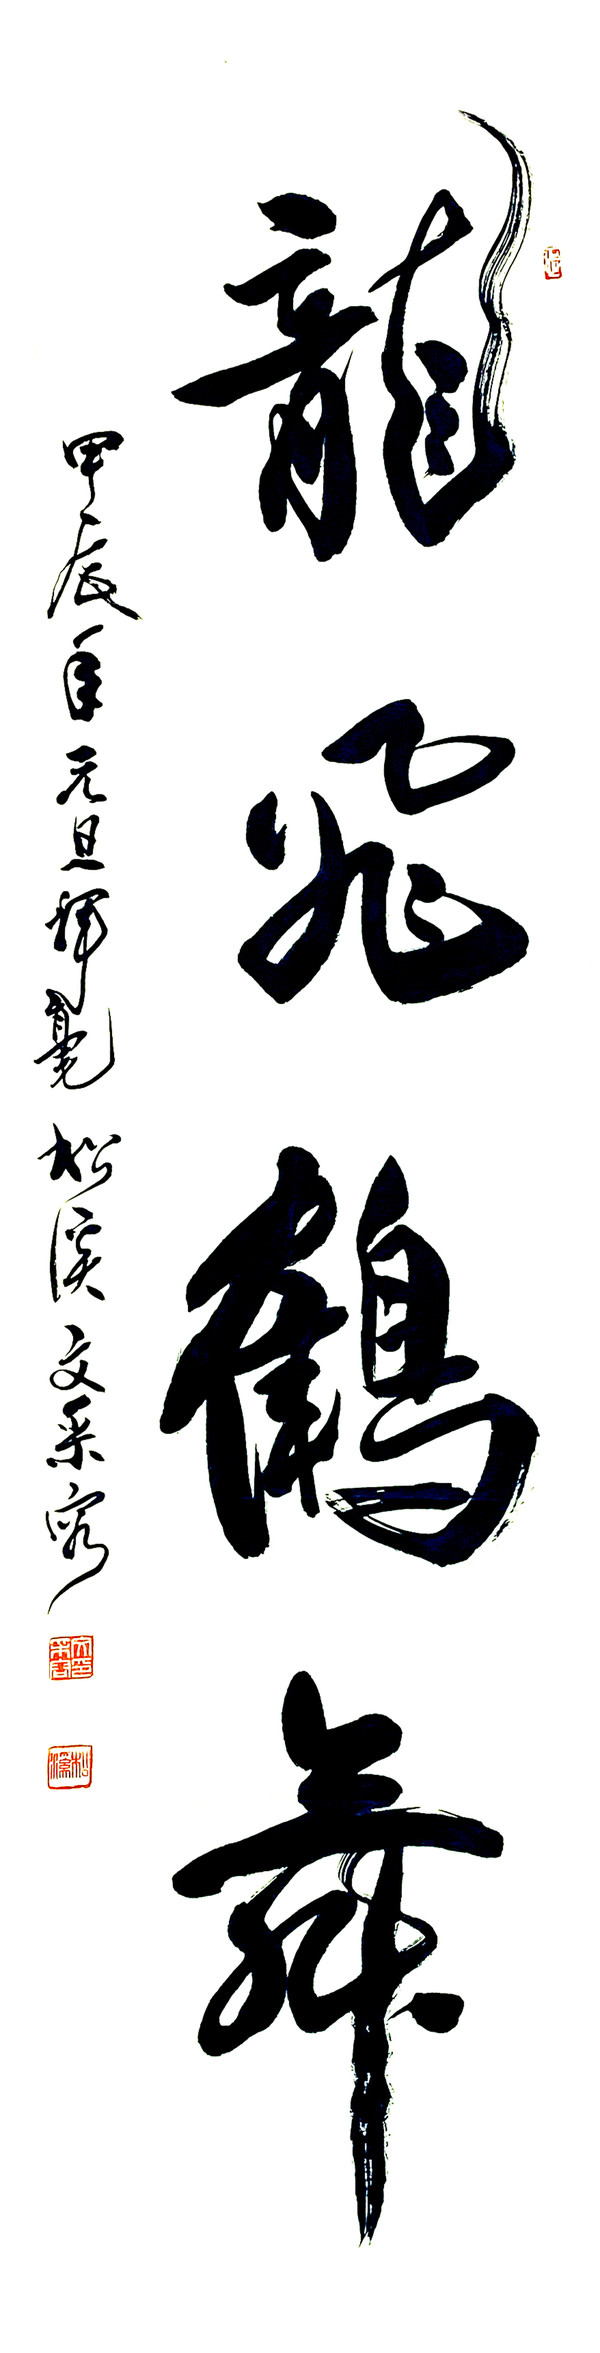 龍飛鶴舞
甲辰年元旦揮毫松溪文采容